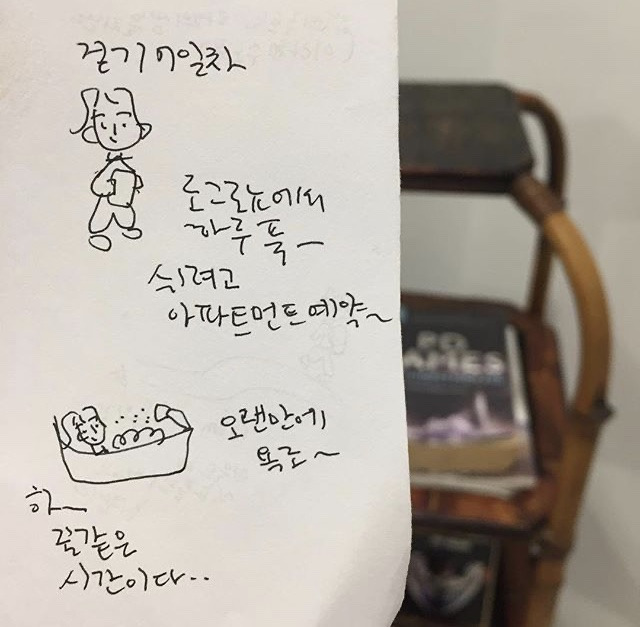 걷기 7일차
로그로뇨에서
하루 푹~
쉬려고
아파트먼트예약~
오랜만에
욕조~
하~
꿀같은
시간이다..
AMES